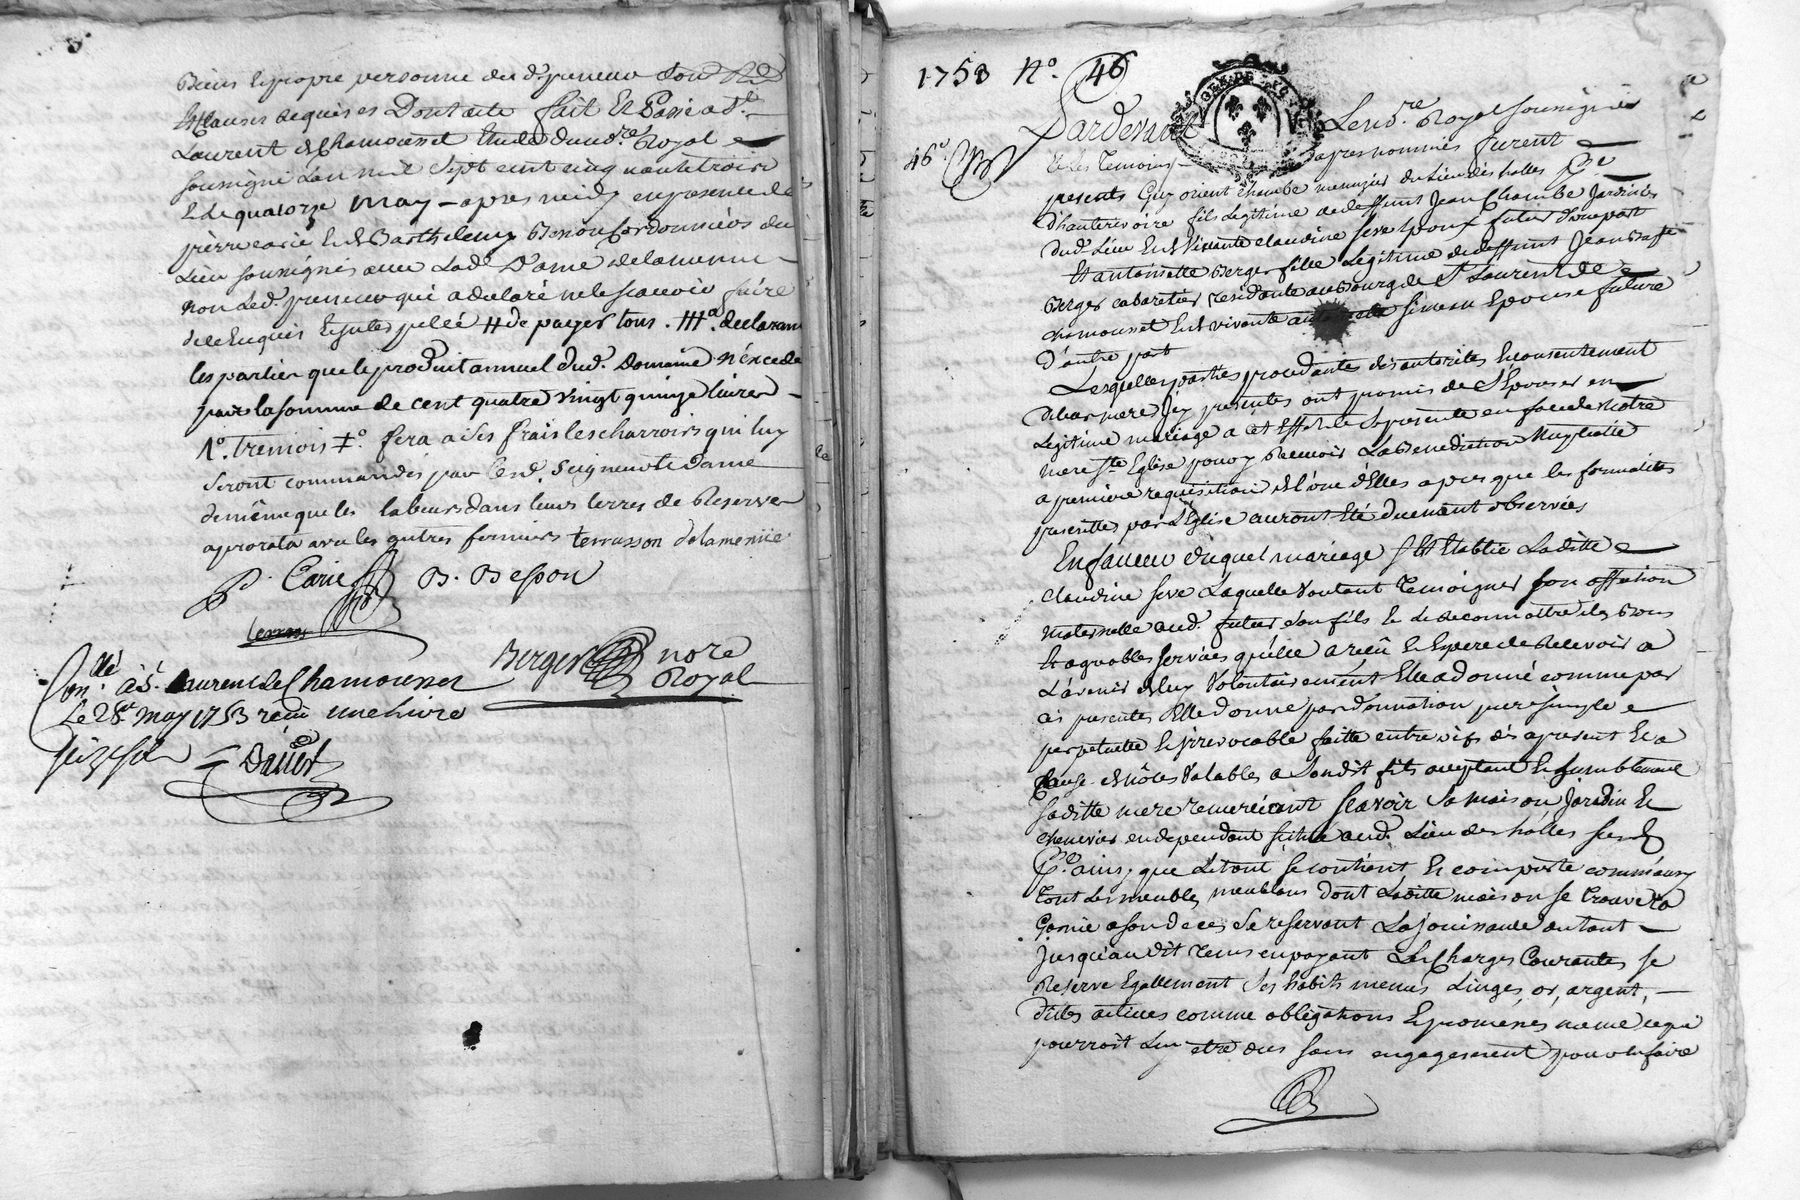 Biens & propre personne dud. preneur
Clauses requises Dont acte fait & Passé a St
Laurent de Chamousset Etude dud nre Royal
soussigné L'an mil sept cent cinquante trois
& le quatorze may apres midy en presence de
pierre carie & de Barthelemy Besson cordonniers du
Lieu soussignés avec Lad Dame delamenue
non Led. preneur qui a declaré ne le scavoir faire
de ce enquis & interpellé # de payer tous. III.o declarant
les parties que le produit annuel dud. Domaine n'excede
pas la somme de cent quatre vingt quinze livres
fera a ses frais les charrois qui luy
seront commandés par Seigneur & Dame
de même que les labeurs dans leurs terres de Reserve
aprorata avec les autres fermiers terrasson delamenüe
P. Carie B. Besson
Berger nore
Royal
Conlé à S. Laurent de Chamousset
Le 28e may 1753 recu une livre
seize sols
1753 No. 46
46e.
Pardevant Le nore. Royal soussigné
& Les Temoins apres nommés furent
presents Guy orient chambe menuzier du Lieu des halles Psse
d'hauterivoire fils Legitime de deffunt Jean Chambe Jardinier
dud. Lieu & de vivante claudine seve Epoux futur d'une part
Et antoinette Berger fille Legitime de deffunt Jean Bapte
Berger cabaretier residante au Bourg de St Laurent de
chamousset & de vivante simeon Epouse future
D'autre part
Lesquelles parties procedantes des autorités & consentement
de leur mere icy presentes ont promis de s'Epouser en
Legitime mariage a cet Effet de se presenter en face de Notre
mere Ste Eglise pour y Recevoir La Benediction Nuptialle
a premiere requisition de l'une d'Elles apres que les formalités
prescrittes par L'Eglise auront Eté duement observées
En faveur duquel mariage s'est Etablie Laditte
claudine seve Laquelle voulant Temoigner son affection
maternelle aud. futur Son fils & de Reconnoitre les Bons
Et agreables services quelle a recu & Espere de Recevoir a
L'avenir de luy volontairement Elle a donné comme par
ces presentes Elle donne par donnation pure simple
perpetuelle & irrevocable faitte entre vifs dès apresent & a
cause de nôces valables a Sondit fils acceptant & humblement
saditte mere remerciant scavoir Sa maison Jardin &
chenevier en dependant scitué aud. Lieu des halles susd
Psse. ainsy que Letout se contient & comporte comm'aussy
tout Les meubles meublans dont Laditte maison se trouvera
Garnie a son deces Se reservant La Jouissance du tout
Jusqu'au dit tems en payant Les Charges Courantes se
Reserve Egallement ses habits menus Linges, or, argent,
dettes actives comme obligations & promesses même ce qui
pourroit Luy etre dus sans engagement pouvoir faire